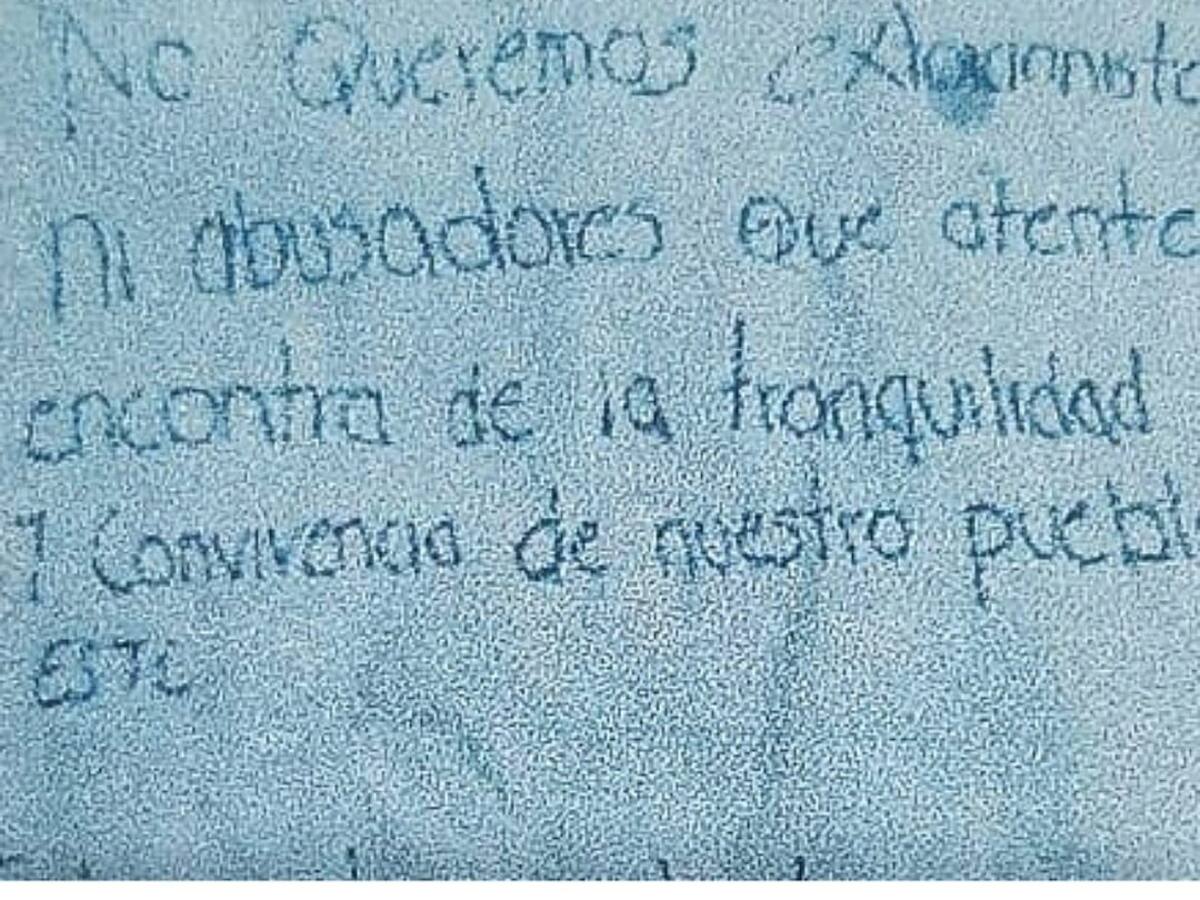 No Queremos
ni abusadores que atente
encontra de la tranquilidad
y Convivencia de nuestro puebl
este